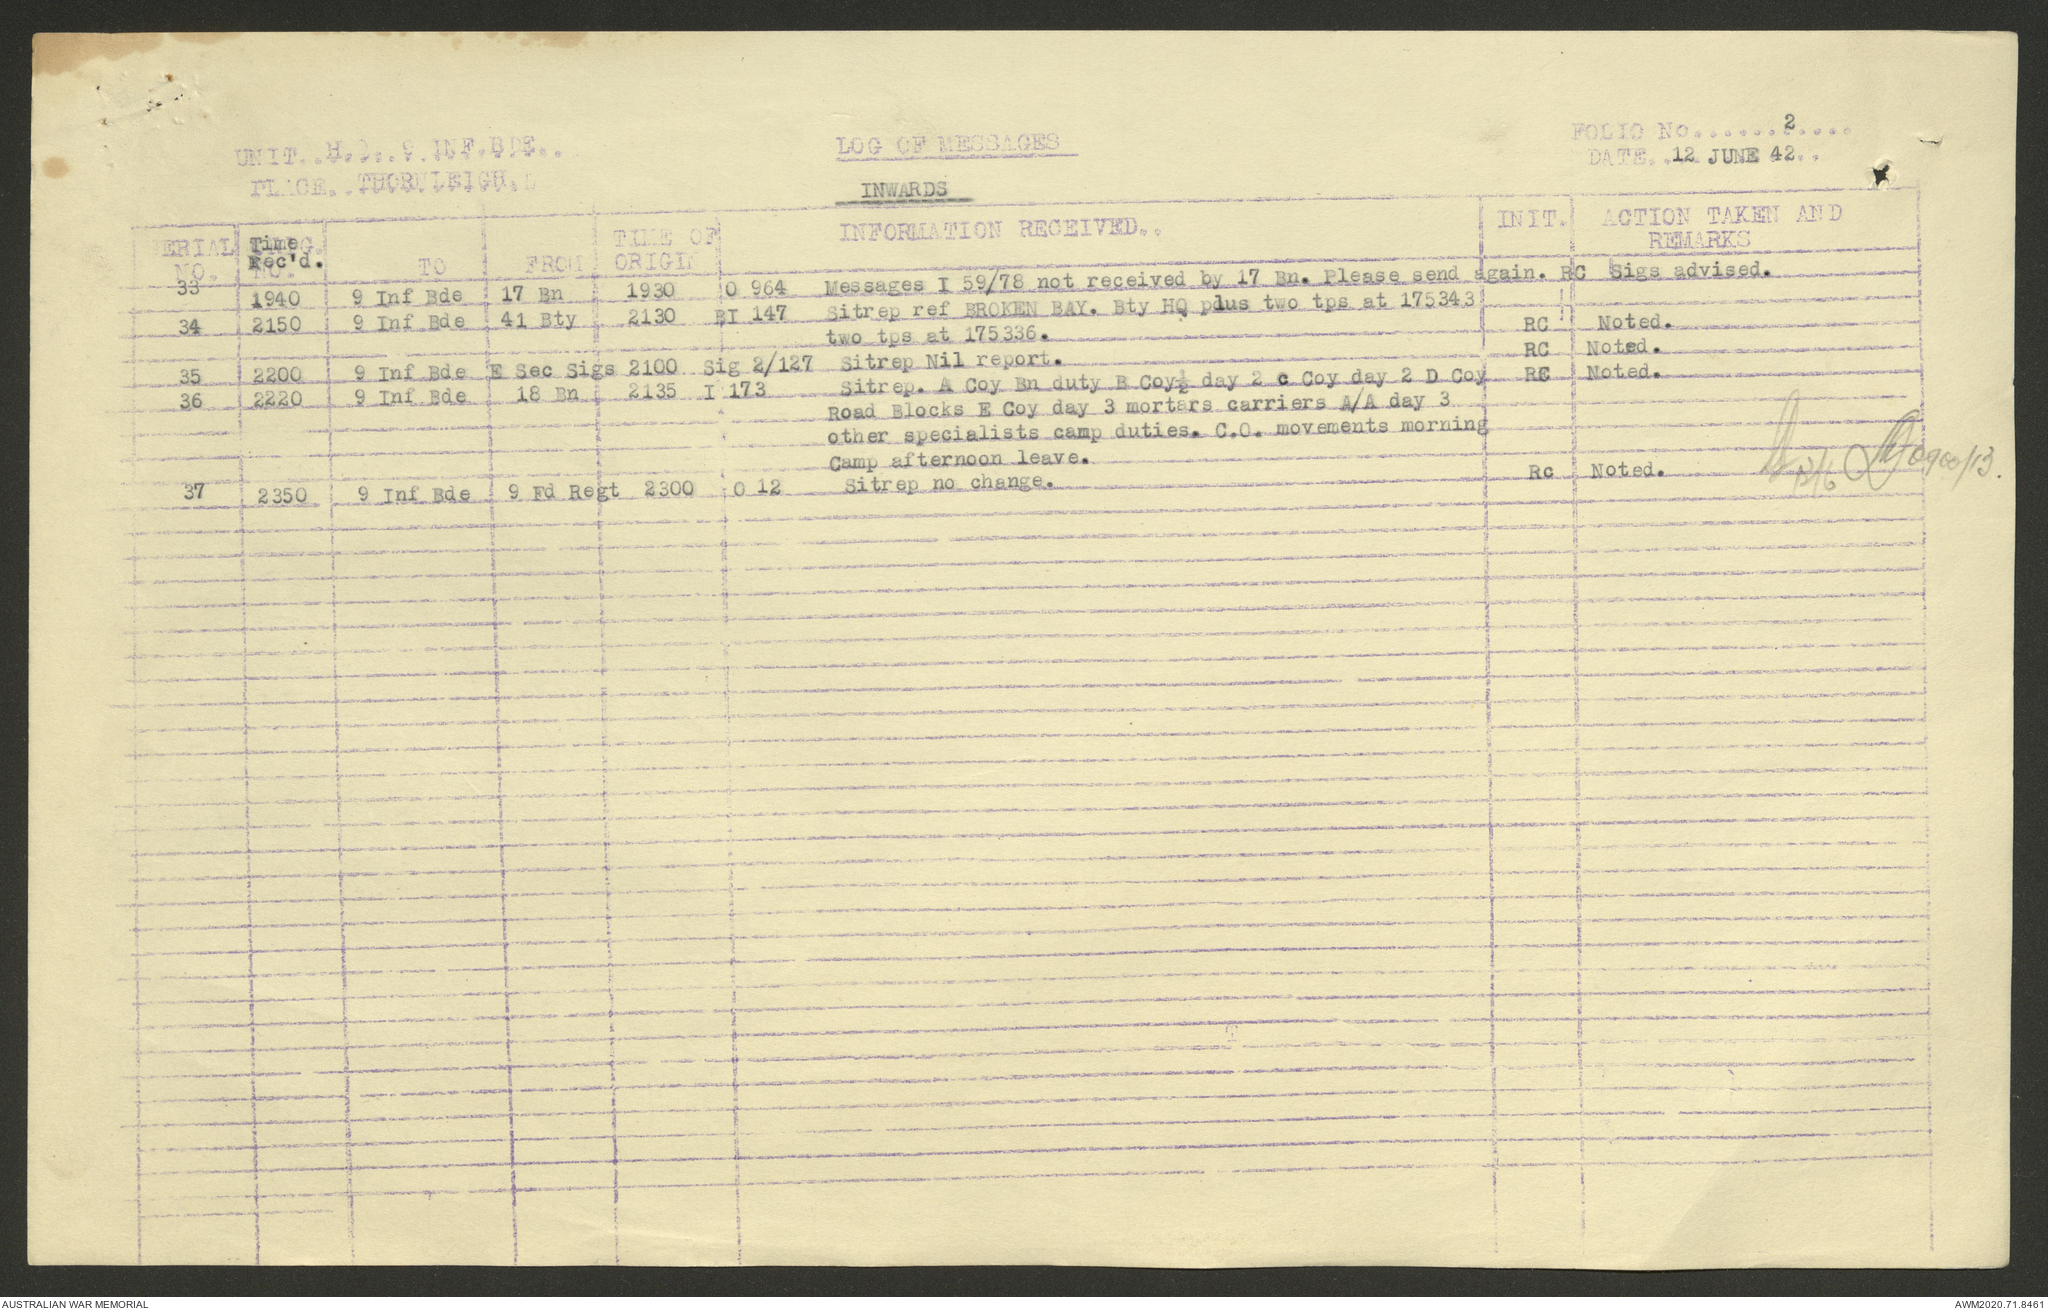 UNIT..H.Q. 9 INF.BDE..
LOG OF MESSAGES
FOLIO No......2....
PLACE..THORNLEIGH.
DATE..12 JUNE 42..
INWARDS
SERIAL NO. Time Rec'd. TO FROM TIME OF ORIGIN INFORMATION RECEIVED.. INIT. ACTION TAKEN AND REMARKS
33 1940 9 Inf Bde 17 Bn 1930 O 964 Messages I 59/78 not received by 17 Bn. Please send again. RC Sigs advised.
34 2150 9 Inf Bde 41 Bty 2130 BI 147 Sitrep ref BROKEN BAY. Bty HQ plus two tps at 175343
two tps at 175336. RC Noted.
35 2200 9 Inf Bde E Sec Sigs 2100 Sig 2/127 Sitrep Nil report. RC Noted.
36 2220 9 Inf Bde 18 Bn 2135 I 173 Sitrep. A Coy Bn duty B Coy ½ day 2 c Coy day 2 D Coy RC Noted.
Road Blocks E Coy day 3 mortars carriers A/A day 3
other specialists camp duties. C.O. movements morning
Camp afternoon leave.
37 2350 9 Inf Bde 9 Fd Regt 2300 O 12 Sitrep no change. Rc Noted.
12/6 0900/13.
AUSTRALIAN WAR MEMORIAL
AWM2020.71.8461